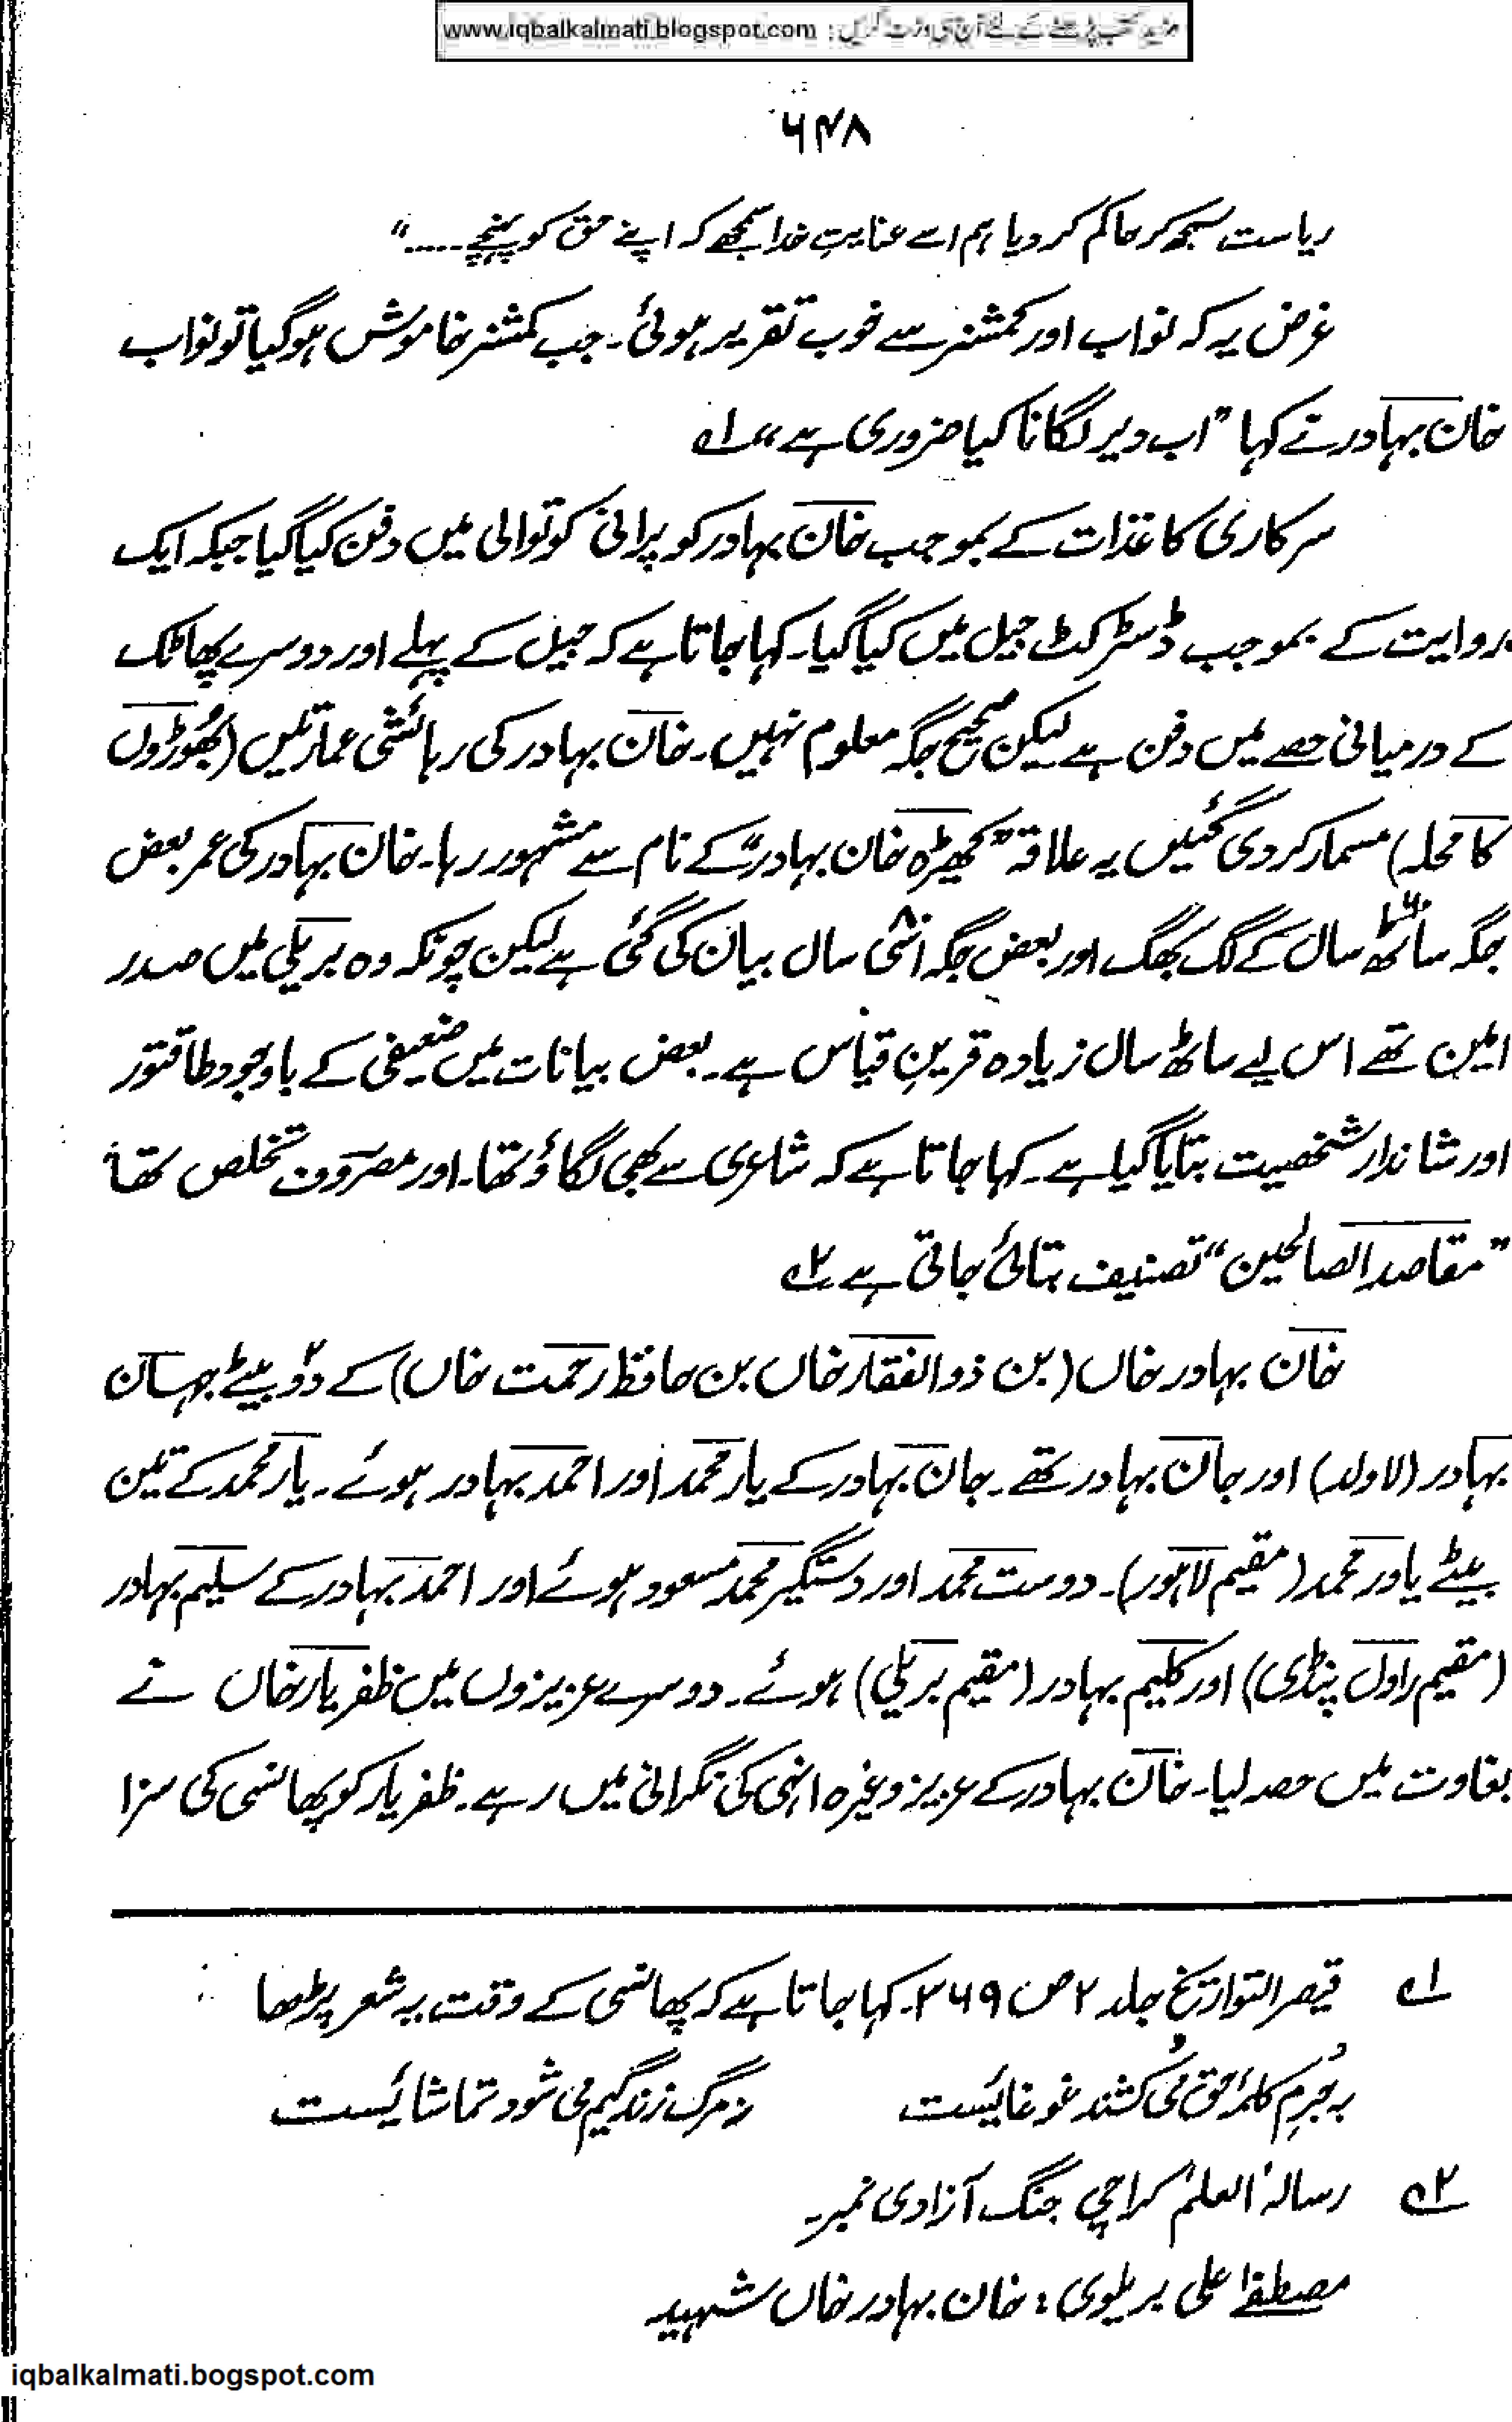 مزید کتب پڑھنے کے لئے آج ہی وزٹ کریں : www.iqbalkalmati.blogspot.com
۶۴۸
ریاست سمجھ کر حاکم کر دیا ہم اسے عنایتِ خدا سمجھے کہ اپنے حق کو پہنچے .....“
غرض یہ کہ نواب اور کمشنر سے خوب تقریر ہوئی۔ جب کمشنر خاموش ہوگیا تو نواب
خان بہادر نے کہا ”اب دیر لگانا کیا ضروری ہے“ ؎۱
سرکاری کاغذات کے بموجب خان بہادر کو پرانی کوتوالی میں دفن کیا گیا جبکہ ایک
روایت کے بموجب ڈسٹرکٹ جیل میں کیا گیا۔ کہا جاتا ہے کہ جیل کے پہلے اور دوسرے پھاٹک
کے درمیانی حصے میں دفن ہے لیکن صحیح جگہ معلوم نہیں۔ خان بہادر کی رہائشی عمارتیں (بھُوڑوں
کا محلہ) مسمار کر دی گئیں یہ علاقہ ”کھیڑہ خان بہادر“ کے نام سے مشہور رہا۔ خان بہادر کی عمر بعض
جگہ ساٹھ۶۰ سال کے لگ بھگ اور بعض جگہ اسّی۸۰ سال بیان کی گئی ہے لیکن چونکہ وہ بریلی میں صدر
امین تھے اس لیے ساٹھ سال زیادہ قرینِ قیاس ہے۔ بعض بیانات میں ضعیفی کے باوجود طاقتور
اور شاندار شخصیت بتایا گیا ہے۔ کہا جاتا ہے کہ شاعری سے بھی لگاؤ تھا۔ اور مصروف تخلص تھا
”مقاصد الصالحین“ تصنیف بتائی جاتی ہے ؎۲
خان بہادر خاں (بن ذوالفقار خاں بن حافظ رحمت خاں) کے دو۲ بیٹے جہان
بہادر (لاولد) اور جان بہادر تھے۔ جان بہادر کے یار محمد اور احمد بہادر ہوئے۔ یار محمد کے تین
بیٹے یاور محمد (مقیم لاہور)۔ دوست محمد اور دستگیر محمد مسعود ہوئے اور احمد بہادر کے سلیم بہادر
(مقیم راول پنڈی) اور کلیم بہادر (مقیم بریلی) ہوئے۔ دوسرے عزیزوں میں ظفر یار خاں نے
بغاوت میں حصہ لیا۔ خان بہادر کے عزیز وغیرہ انہی کی نگرانی میں رہے۔ ظفر یار کو پھانسی کی سزا
؎۱ قیصر التواریخ جلد ۲ ص ۳۶۹۔ کہا جاتا ہے کہ پھانسی کے وقت یہ شعر پڑھا
بہ جُرمِ کلمۂ حق می کُشند غوغائیست ز مرگ زندگیم می شود تماشائیست
؎۲ رسالہ ’العلم‘ کراچی جنگ آزادی نمبر۔
مصطفےٰ علی بریلوی : خان بہادر خاں شہید
iqbalkalmati.bogspot.com